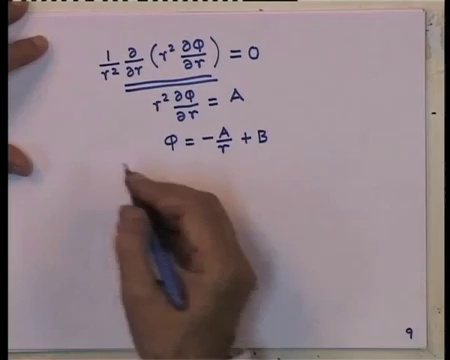 1/r² ∂/∂r (r² ∂φ/∂r) = 0
r² ∂φ/∂r = A
φ = - A/r + B
9